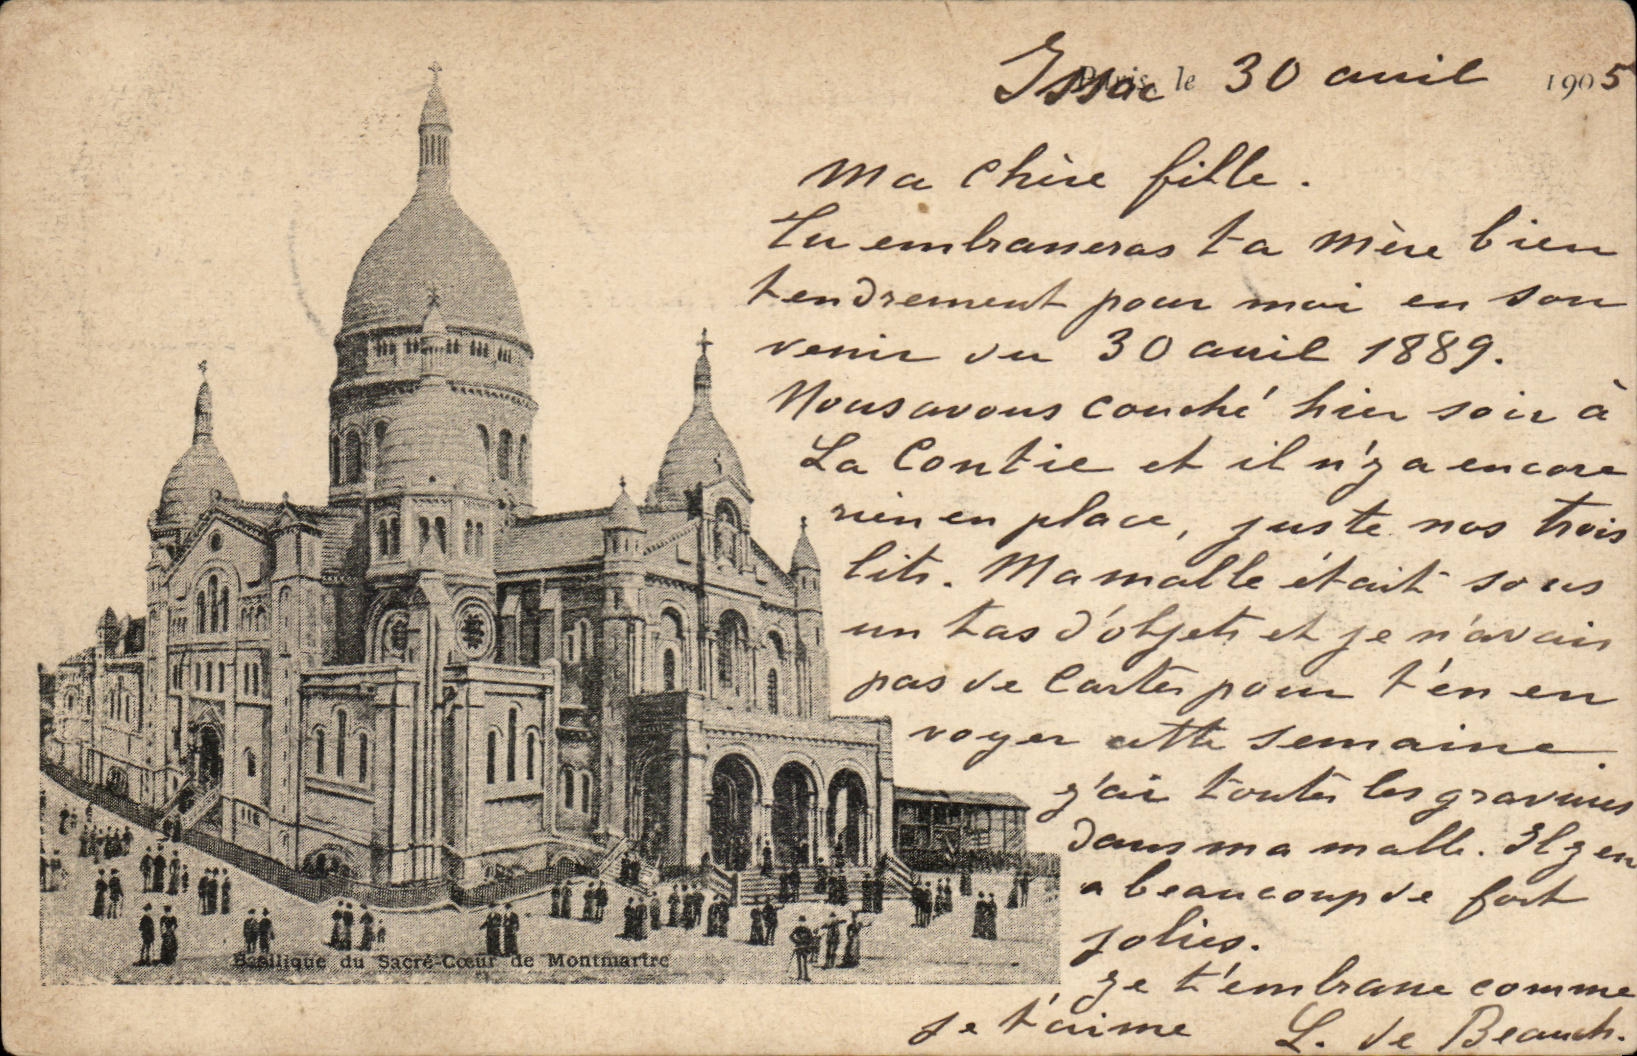 Paris, le 30 avril 1905
Issac
Ma chère fille.
Tu embrasseras ta mère bien
tendrement pour moi en sou
venir du 30 avril 1889.
Nous avons couché hier soir à
La Contie et il n'y a encore
rien en place, juste nos trois
lits. Ma malle était sous
un tas d'objets et je n'avais
pas de cartes pour t'en en
voyer cette semaine.
J'ai toutes les gravures
dans ma malle. Il y en
a beaucoup de fort
jolies.
Je t'embrasse comme
je t'aime L. de Beauch.
Basilique du Sacré-Cœur de Montmartre